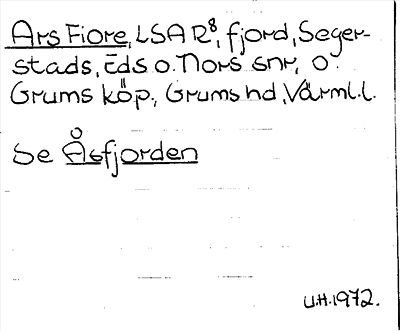 Ars Fiore, LSA R⁸, fjord, Seger-
stads, Eds o. Nors snr, o.
Grums köp., Grums hd, Värml. l.
Se Åsfjorden
U.H. 1972.